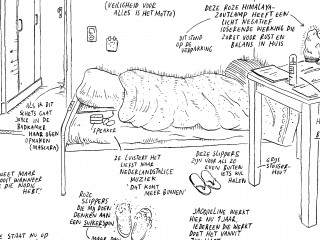 (VEILIGHEID VOOR
ALLES IS HET MOTTO)
DEZE ROZE HIMALAYA-
ZOUTLAMP HEEFT EEN
LICHT NEGATIEF
IONISERENDE WERKING DIE
ZORGT VOOR RUST EN
BALANS IN HUIS
DIT STOND
OP DE
VERPAKKING
ALS IK DIT
SCHETS GAAT
JACKIE IN DE
BADKAMER
HAAR OGEN
OPMAKEN
(MASCARA)
SPEAKER
ZE LUISTERT HET
LIEFST NAAR
NEDERLANDSTALIGE
MUZIEK
'DAT KOMT
MEER BINNEN'
DEZE SLIPPERS
ZIJN VOOR ALS ZE
EVEN BUITEN
IETS WIL
HALEN
GRIJS
STEIGER-
HOUT
ROZE
SLIPPERS
DIE MIJ DOEN
DENKEN AAN
EEN SUIKERSPIN
JACQUELINE WERKT
HIER NU 1 JAAR,
IEDEREEN DIE WERKT
DOET HET VANUIT
WANNEER
DIE NODIG
HEBT.
STAAT NU OP